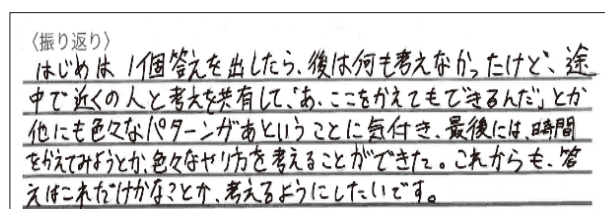 〈振り返り〉
はじめは、1個答えを出したら、後は何も考えなかったけど、途
中で近くの人と考えを共有して、「あ、ここをかえてもできるんだ」とか
他にも色々なパターンがあということに気付き、最後には、時間
をかえてみようとか、色々なヤリ方を考えることができた。これからも、答
えはこれだけかな?とか、考えるようにしたいです。